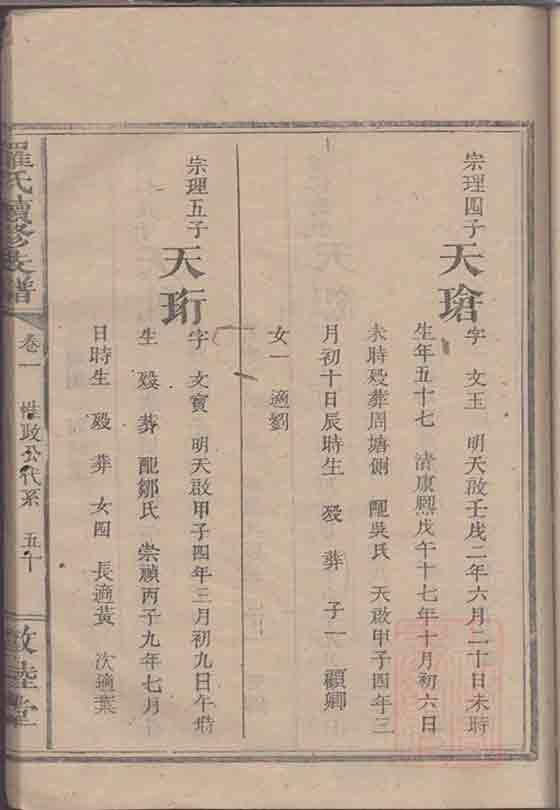 宗理四子
天瑲
字 文玉 明天啟壬戌二年六月二十日未時
生年五十七 清康熙戊午十七年十月初六日
未時殁葬周塘側 配吳氏 天啟甲子四年三
月初十日辰時生 殁 葬 子一 顧卿
女一 適劉
宗理五子
天珩
字 文寶 明天啟甲子四年三月初九日午時
生 殁 葬 配鄒氏 崇禎丙子九年七月
日時生 殁 葬 女四 長適黃 次適葉
羅氏續修支譜
卷一 惟政公代系 五十
敦陸堂